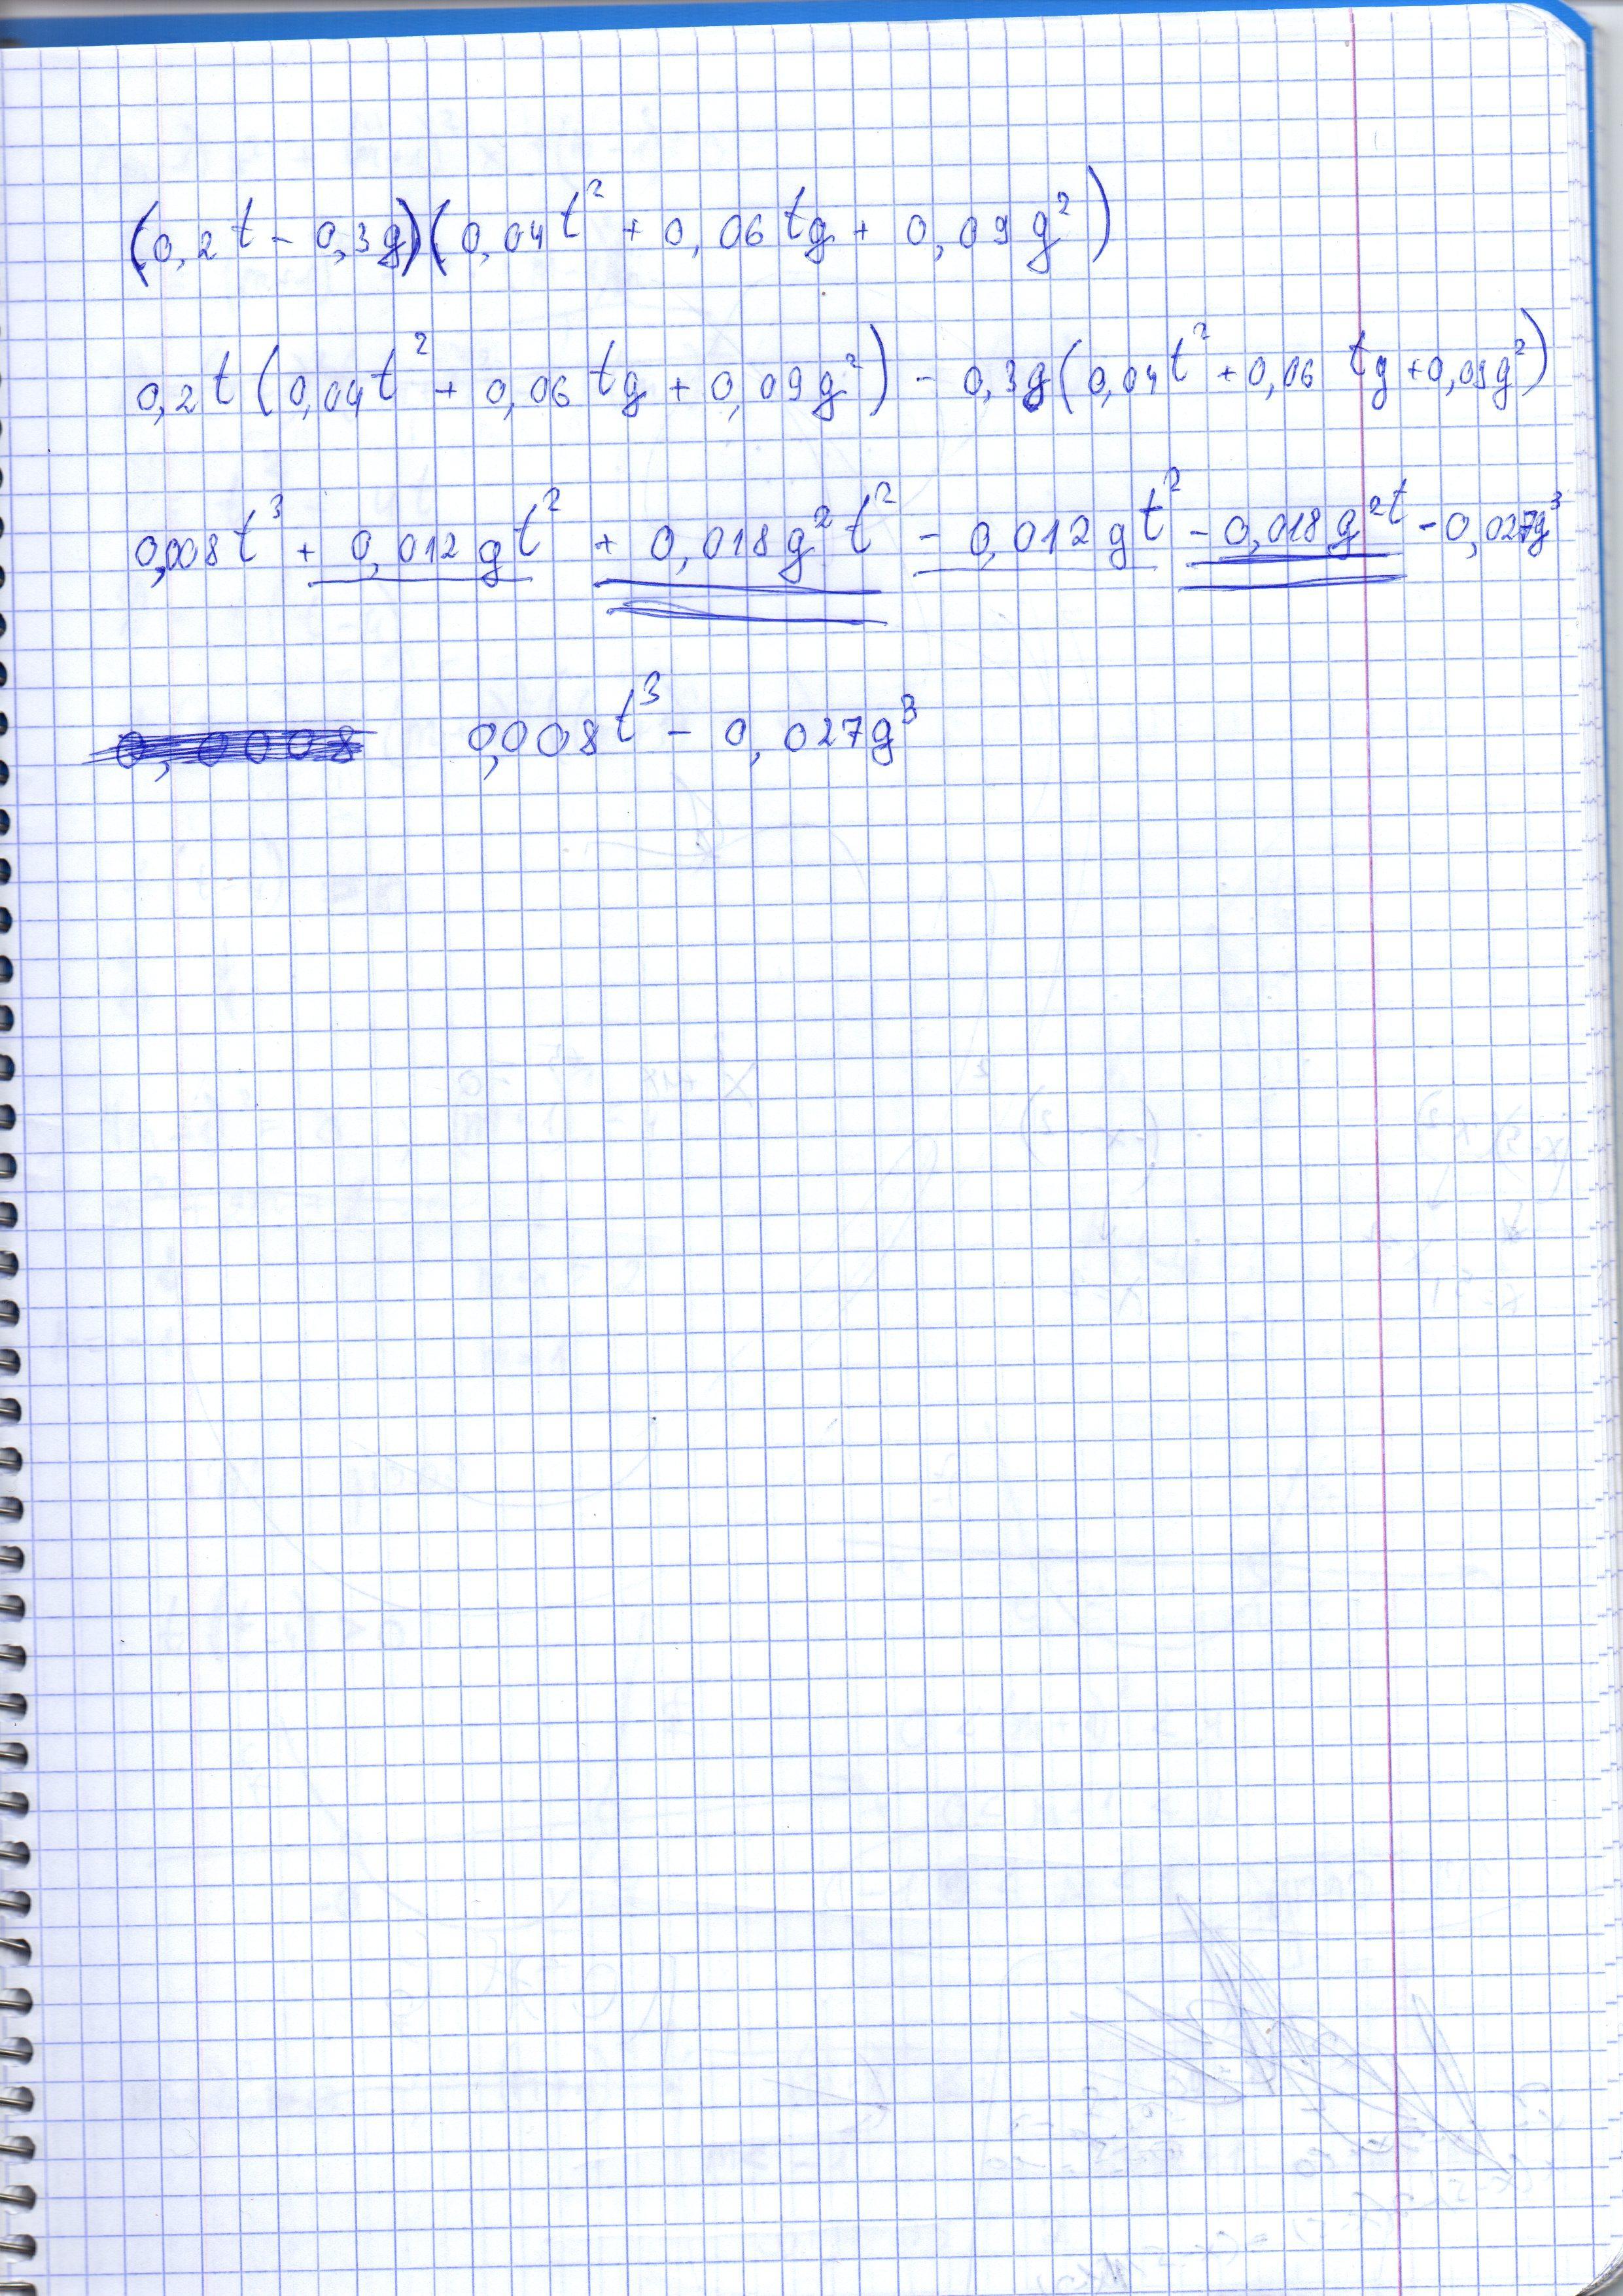 (0,2t - 0,3g)(0,04t² + 0,06tg + 0,09g²)
0,2t(0,04t² + 0,06tg + 0,09g²) - 0,3g(0,04t² + 0,06tg + 0,09g²)
0,008t³ + 0,012gt² + 0,018g²t² - 0,012gt² - 0,018g²t - 0,027g³
0,0008 0,008t³ - 0,027g³